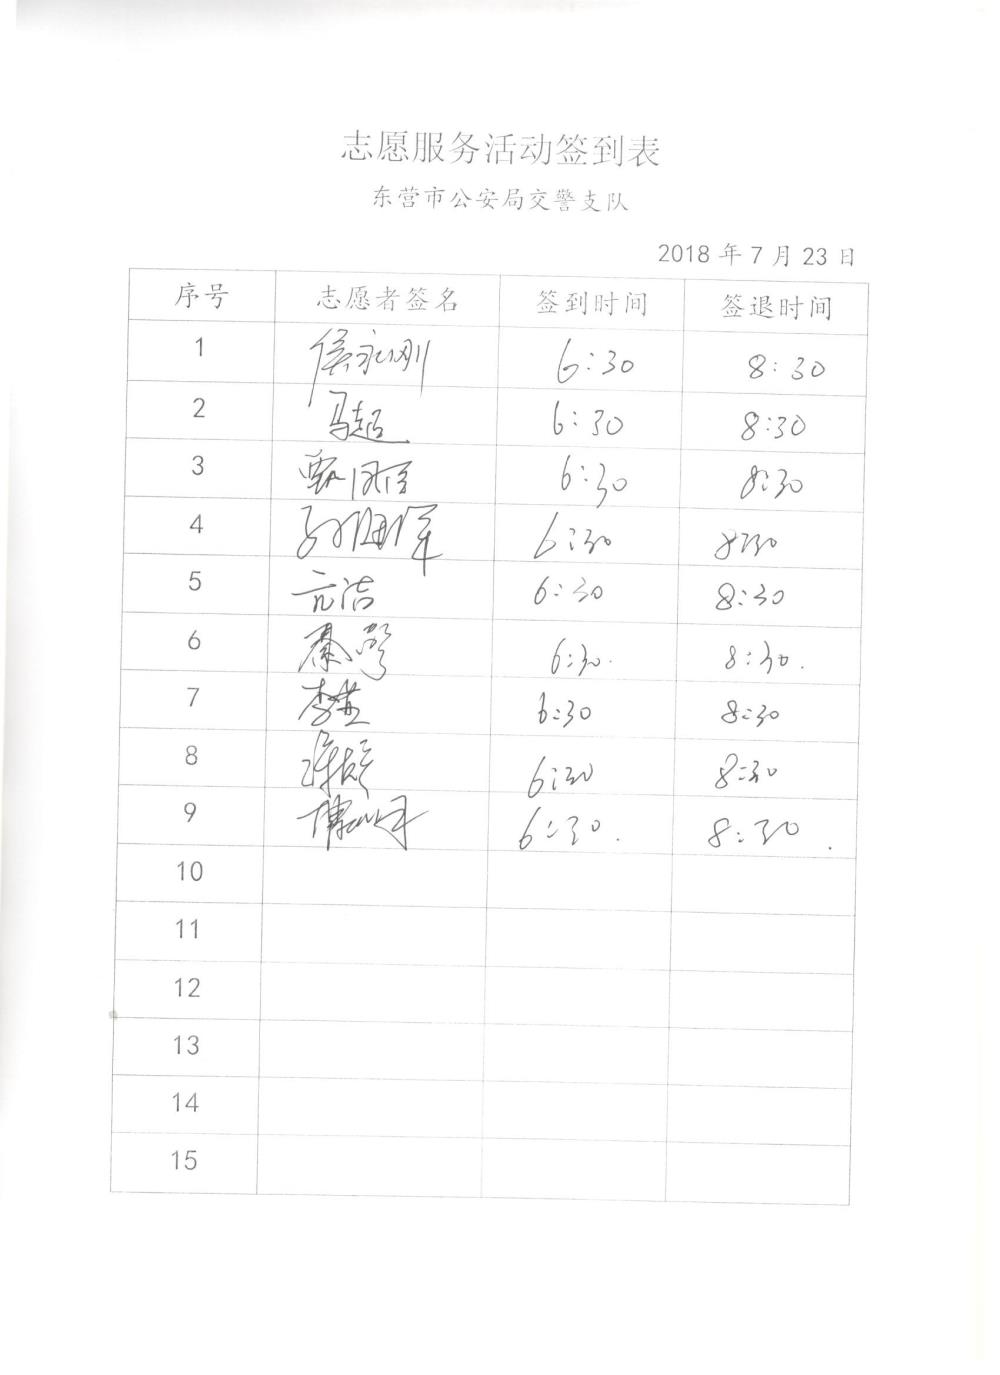 志愿服务活动签到表
东营市公安局交警支队
2018 年 7 月 23 日
序号 志愿者签名 签到时间 签退时间
1 侯永刚 6:30 8:30
2 马超 6:30 8:30
3 6:30 8:30
4 6:30 8:30
5 亓洁 6:30 8:30
6 6:30. 8:30.
7 6:30 8:30
8 6:30 8:30
9 6:30. 8:30.
10
11
12
13
14
15